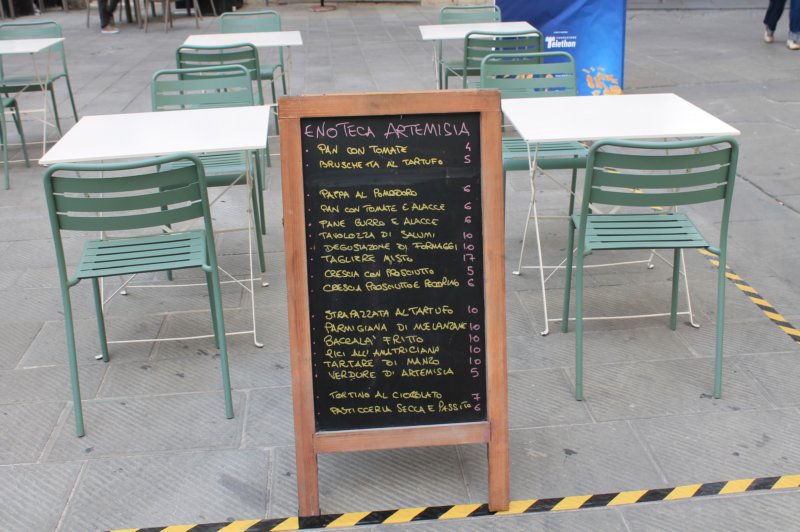 ENOTECA ARTEMISIA
PAN CON TOMATE 4
BRUSCHETTA AL TARTUFO 5
PAPPA AL POMODORO 6
PAN CON TOMATE E ALACCE 6
PANE BURRO E ALACCE 6
TAVOLOZZA DI SALUMI 10
DEGUSTAZIONE DI FORMAGGI 10
TAGLIERE MISTO 17
CRESCIA CON PROSCIUTTO 5
CRESCIA PROSCIUTTO E PECORINO 6
STRAPAZZATA AL TARTUFO 10
PARMIGIANA DI MELANZANE 10
BACCALA' FRITTO 10
PICI ALL'AMATRICIANA 10
TARTARE DI MANZO 10
VERDURE DI ARTEMISIA 5
TORTINO AL CIOCCOLATO 7
PASTICCERIA SECCA E PASSITO 6
FONDAZIONE
Telethon